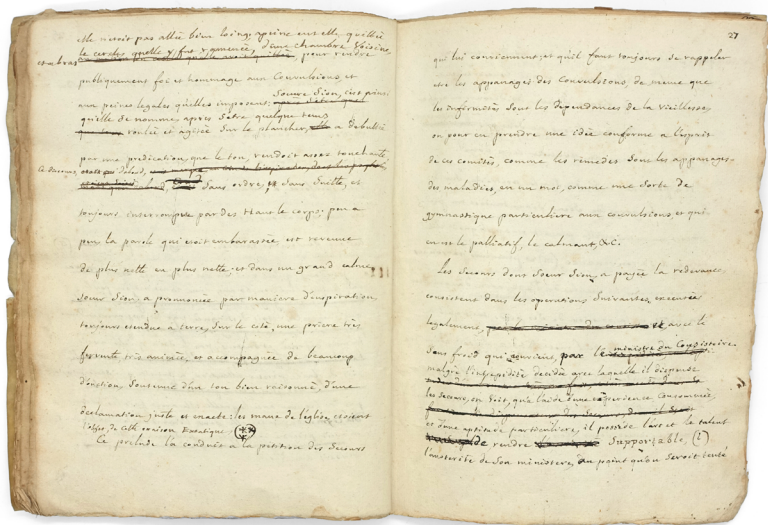 elle n'etoit pas allée bien loing, a peine eut elle quittée
le cercle, d'une chambre Voisine,
pour rendre
publiquement foi et hommage aux Convulsions, et
Soeur Sion, c'est ainsi
aux peines legales qu'elles imposent:
qu'elle se nomme, après s'être quelque tems
roulée et agitée Sur le plancher, a debutée
par une predication, que le ton, rendoit assez touchante,
Sans ordre, et Sans Suitte, et
toujours interrompue par des maux de corps. peu a
peu la parole qui etoit embarassée est revenue
de plus nette en plus nette; et dans un grand calme,
soeur Sion, a prononcée par maniere d'inspiration,
toujours etendue a terre, Sur le coté, une priere très
fervente, très animée, et accompagnée de beaucoup
d'onction Soutenue d'un ton bien raisonné, d'une
déclamation juste et exacte: les maux de l'eglise, etoient
l'objet de cette oraison Extatique.
Ce prelude l'a conduit a la petition des Secours
27
qui lui conviennent; et qu'il faut toujours se rappeler
etre les appanages des Convulsions, de meme que
les infirmités Sont les dependances de la Vieillesse,
ou pour en prendre une idée conforme a l'esprit
de ces comités, comme les rémedes Sont les appanages
des maladies, en un mot, comme une Sorte de
gymnastique particuliere aux convulsions, et qui
en est le palliatif, le calmant, &C.
Les Secours dont Soeur Sion, a payée la redevance,
consistent dans les operations Suivantes, executées
legalement, avec le
Sang froid qui convient, par le ministre du Consistoire.
malgré l'intrepidité decidée avec laquelle il dispense
les Secours, on Sait, qu'a l'aide d'une experience Consommée,
et d'une aptitude particuliere, il possede l'art et le talent
de rendre Supportable, (1)
l'austerité de Son ministere, au point qu'on Seroit tenté